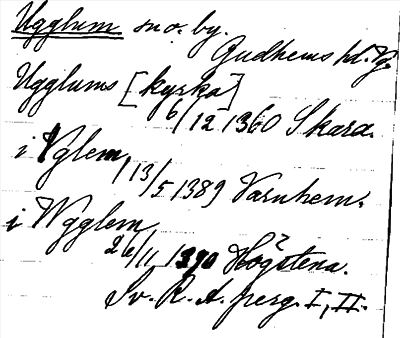 Ugglum sno. by.
Gudhems hd. Vg.
Ugglums [kyrka]
6/12 1360 Skara.
i Vglem,
13/5 1389 Varnhem.
i Wgglem
26/11 1390 Högstena.
Sv. R. A. perg. I, II.